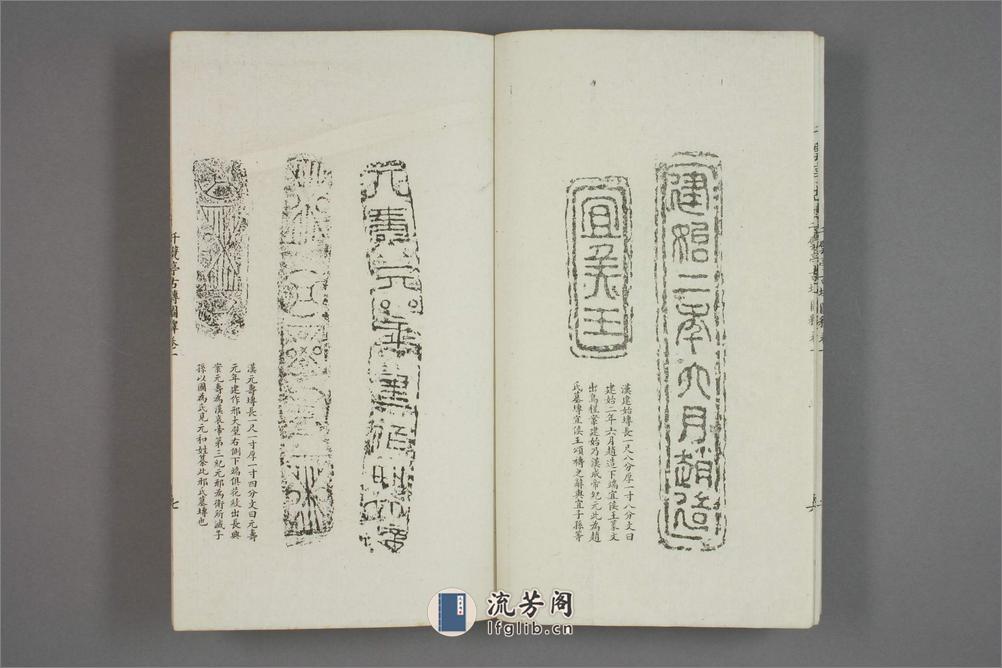 建始二年六月趙造
宜矦王
漢建始塼長一尺八分厚一寸八分文曰
建始二年六月趙造下端宜矦王篆文
出烏程案建始乃漢成帝紀元此為趙
氏墓塼宜矦王頌禱之辭與宜子孫等
元壽元年
漢元壽塼長一尺一寸厚一寸四分文曰元壽
元年建作邢大壁右側下端俱花紋出長興
案元壽為漢哀帝第三紀元邢為衛所滅子
孫以國為氏見元和姓纂此邢氏墓塼也
千甓亭古塼圖釋卷一
七
流芳阁
lfglib.cn